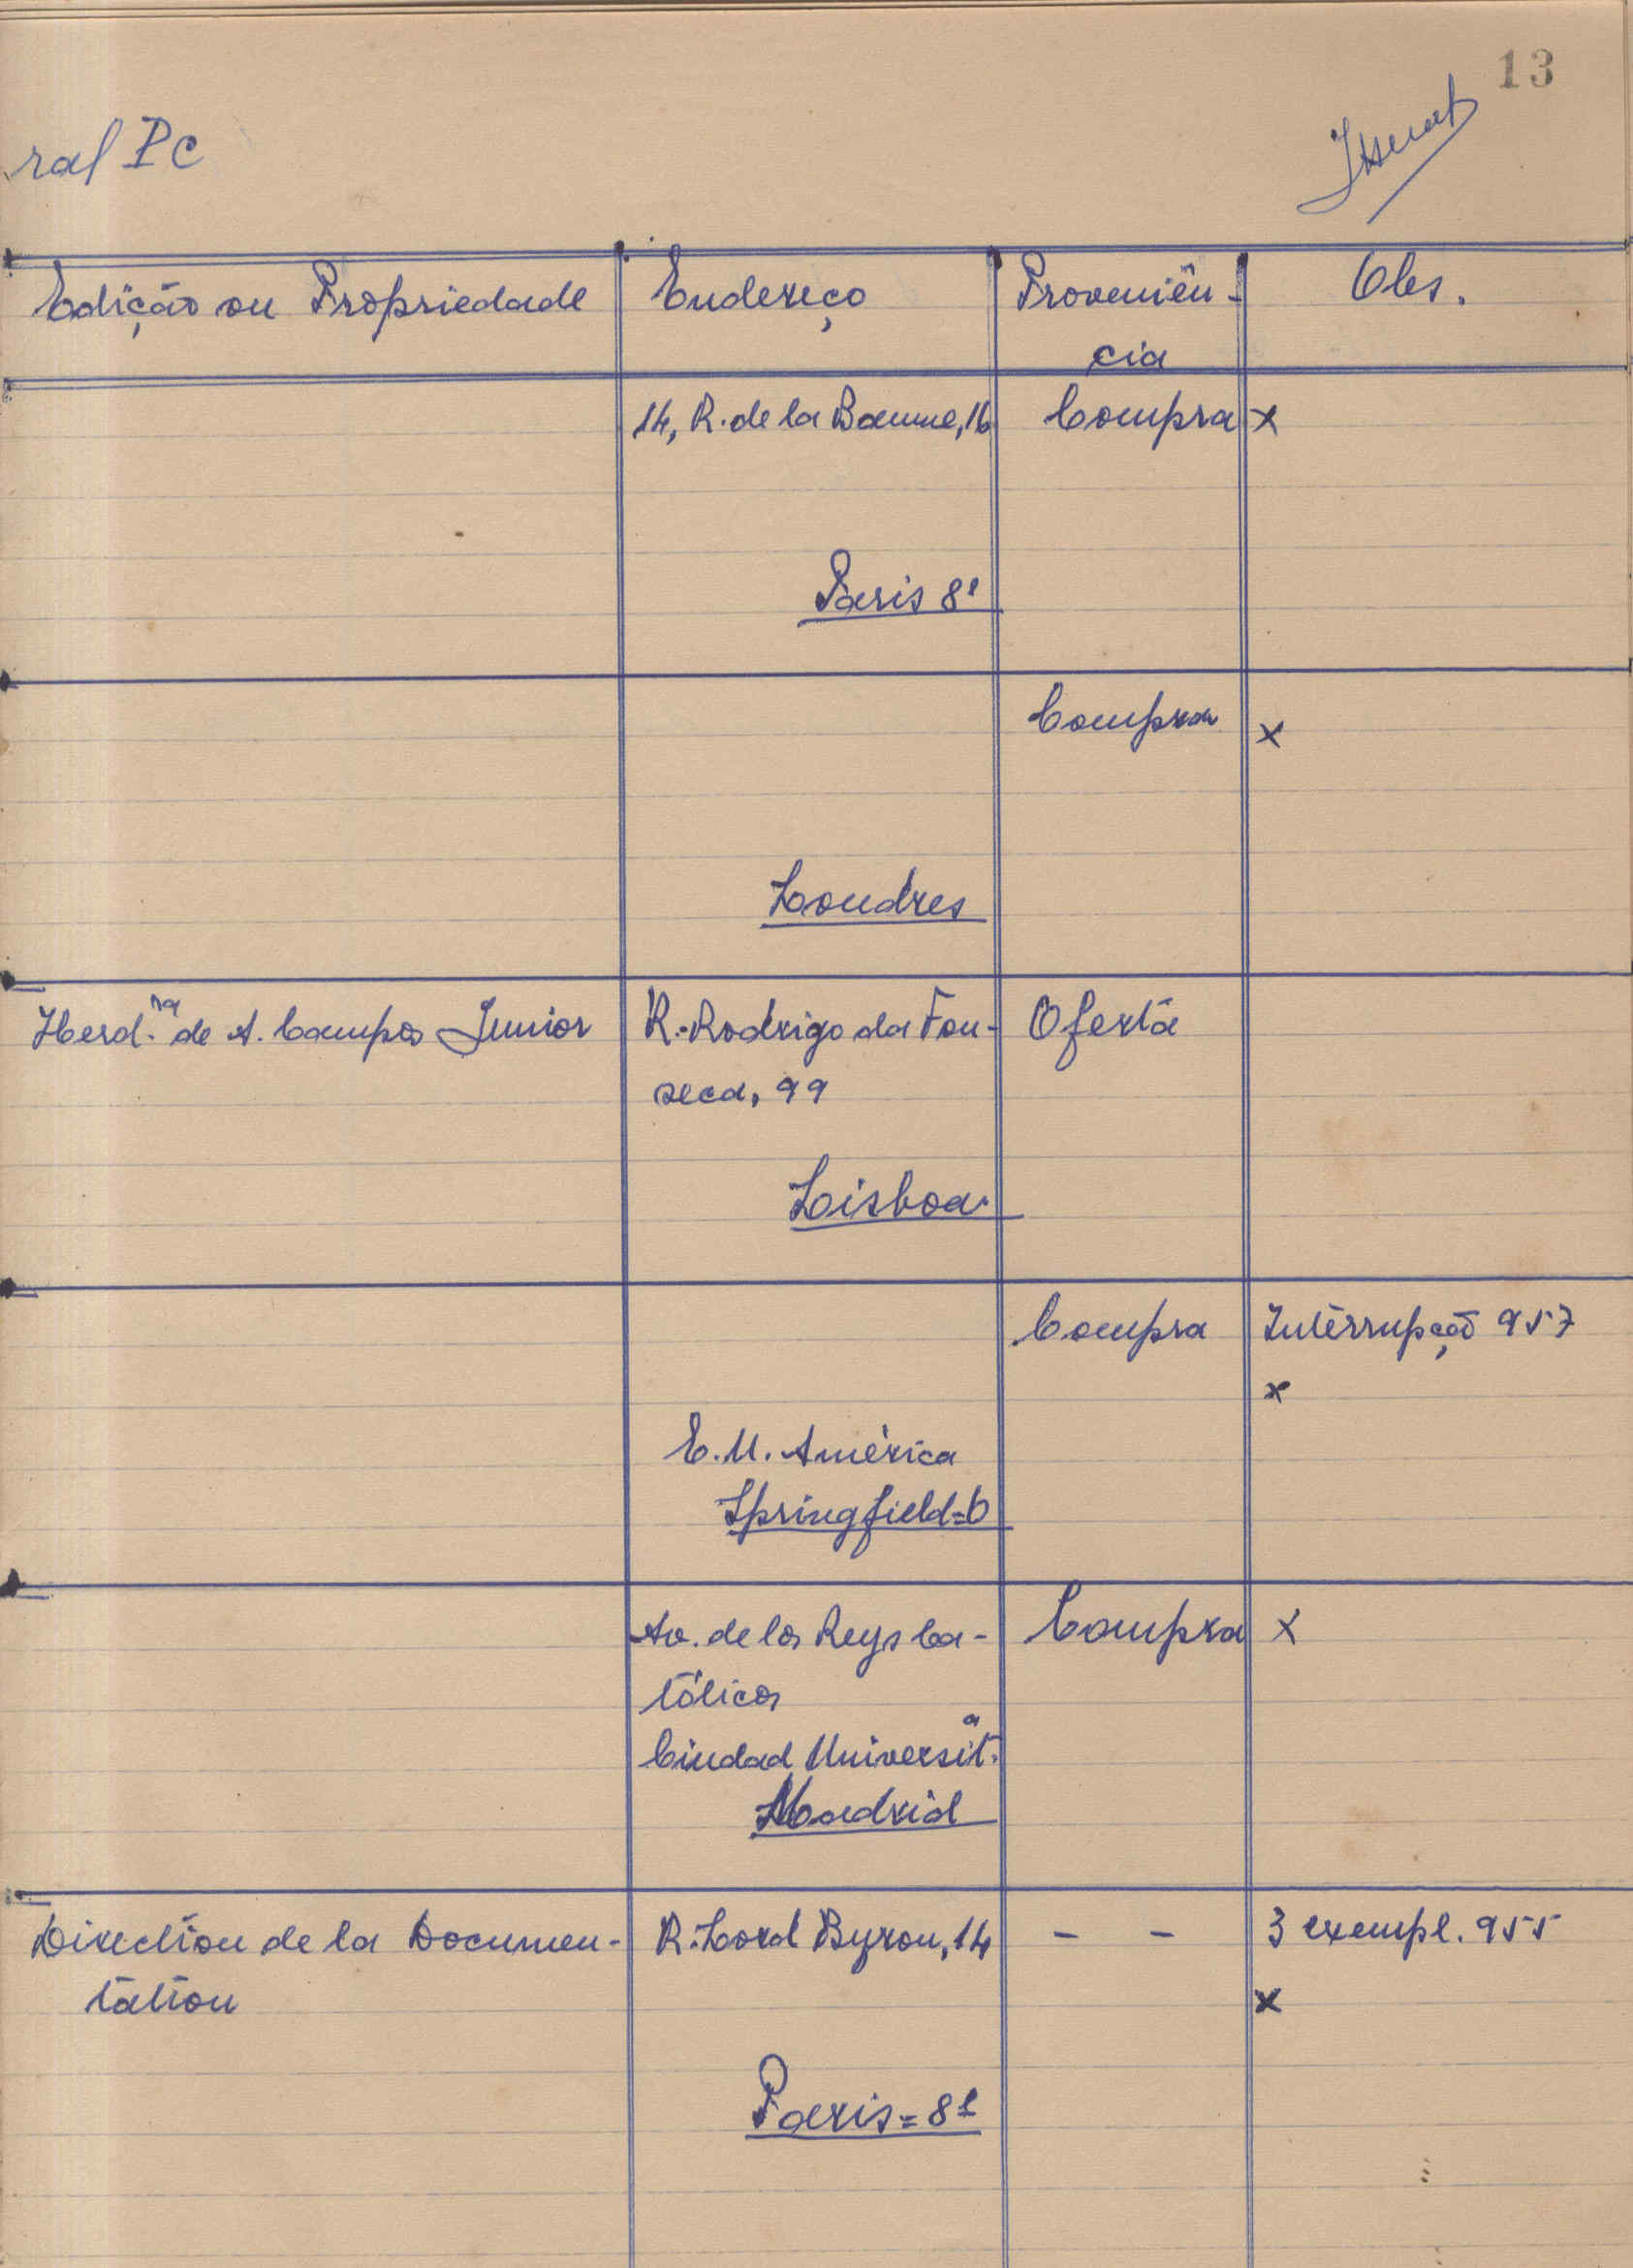 13
ral Pc
Edição ou Propriedade Endereço Proveniên- Obs.
cia
14, R. de la Baume, 16 Compra x
Paris 8e
Compra x
Londres
Herd.ra de A. Campos Junior R. Rodrigo da Fon- Oferta
seca, 99
Lisboa.
Compra Interrupção 957
x
E. U. América
Springfield=6
Av. de los Reys Ca- Compra x
tólicos
Ciudad Universit.a
Madrid
Direction de la Documen- R. Lord Byron, 14 - - 3 exempl. 955
tation x
Paris=8e